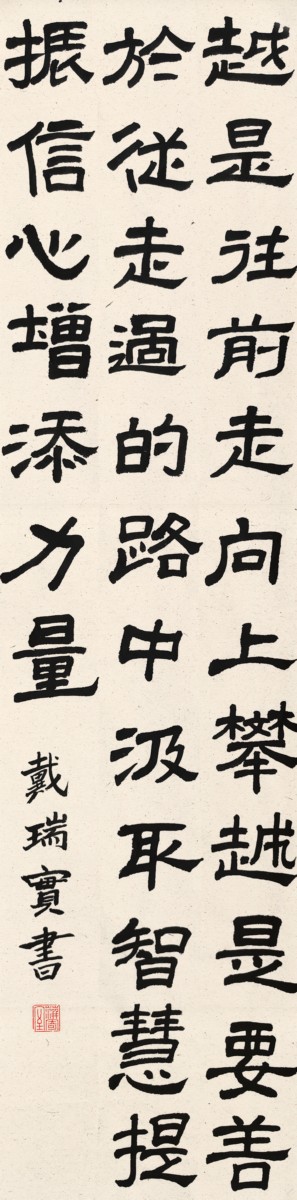 越是往前走向上攀越是要善
於從走過的路中汲取智慧提
振信心增添力量
戴瑞實書